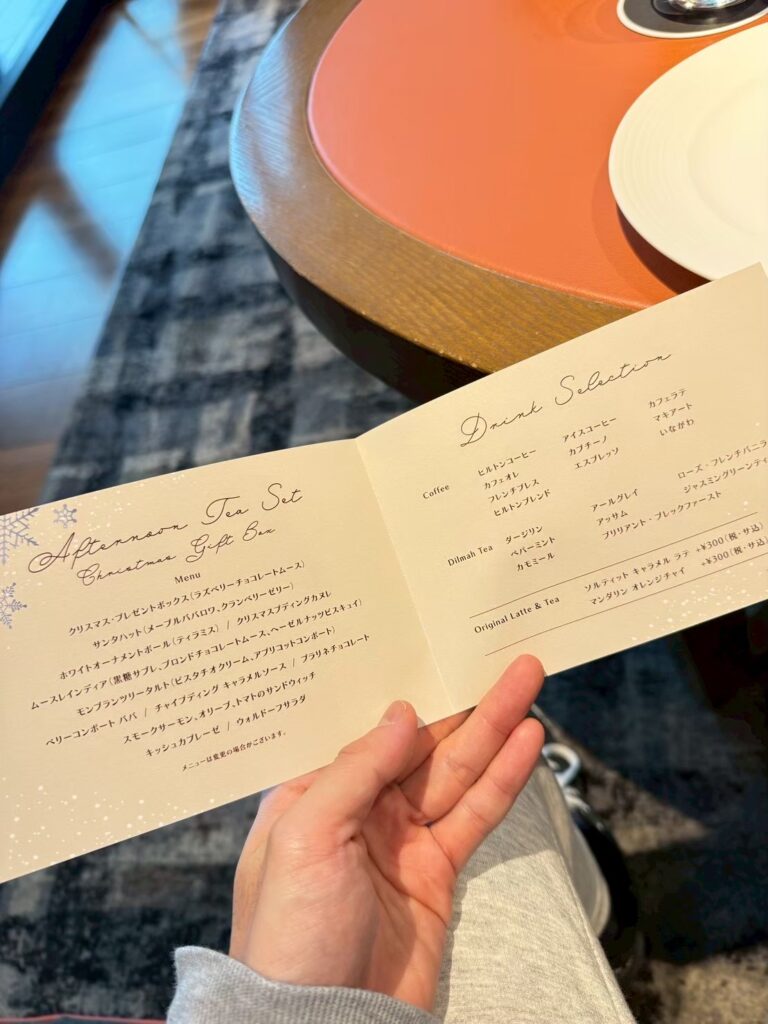 Afternoon Tea Set
Christmas Gift Box
Menu
クリスマス・プレゼントボックス(ラズベリーチョコレートムース)
サンタハット(メープルババロワ、クランベリーゼリー)
ホワイトオーナメントボール(ティラミス) / クリスマスプディングカヌレ
ムースレインディア(黒糖サブレ、ブロンドチョコレートムース、ヘーゼルナッツビスキュイ)
モンブランツリータルト(ピスタチオクリーム、アプリコットコンポート)
ベリーコンポート ババ / チャイプディング キャラメルソース / プラリネチョコレート
スモークサーモン、オリーブ、トマトのサンドウィッチ
キッシュカプレーゼ / ウォルドーフサラダ
メニューは変更の場合がございます。
Drink Selection
Coffee
ヒルトンコーヒー アイスコーヒー カフェラテ
カフェオレ カプチーノ マキアート
フレンチプレス エスプレッソ いながわ
ヒルトンブレンド
Dilmah Tea
ダージリン アールグレイ ローズ・フレンチバニラ
ペパーミント アッサム ジャスミングリーンティ
カモミール ブリリアント・ブレックファースト
Original Latte & Tea
ソルティット キャラメル ラテ +¥300(税・サ込)
マンダリン オレンジチャイ +¥300(税・サ込)